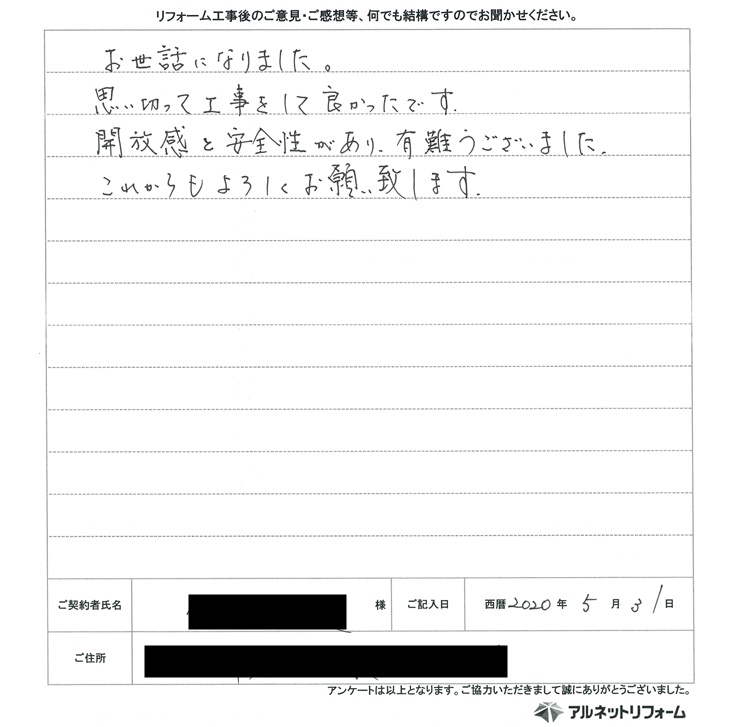 リフォーム工事後のご意見・ご感想等、何でも結構ですのでお聞かせください。
お世話になりました。
思い切って工事をして良かったです.
開放感と安全性があり、有難うございました.
これからもよろしくお願い致します.
ご契約者氏名 様 ご記入日 西暦2020年 5月 31日
ご住所
アンケートは以上となります。ご協力いただきまして誠にありがとうございました。
アルネットリフォーム